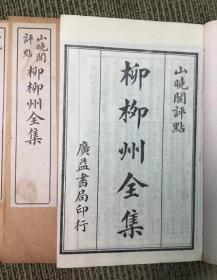 山曉閣評點
柳柳州全集
廣益書局印行
山曉閣
評點
柳柳州全集